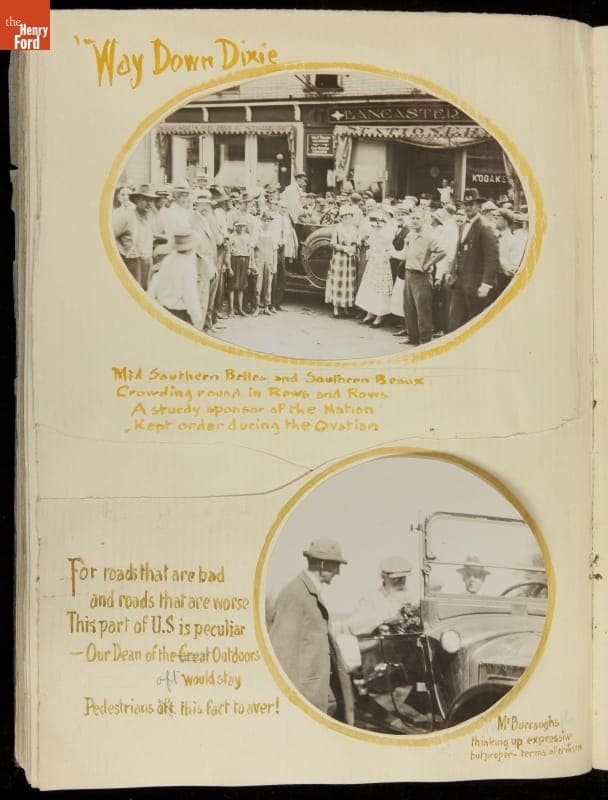 the
Henry
Ford
"Way Down Dixie
LANCASTER
KODAKS
Mid Southern Belles and Southern Beaux
Crowding round in Rows and Rows
A sturdy sponsor of the Nation
Kept order during the Ovation
For roads that are bad
and roads that are worse
This part of U.S is peculiar
—Our Dean of the Great Outdoors
oft would stay
Pedestrians this fact to aver!
Mr Burroughs
thinking up expressive
but proper - terms of